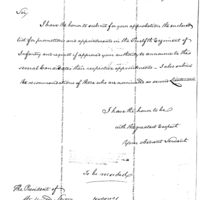 Sir,
I have the honor to submit for your approbation the enclosed
list for promotions and appointments in the twelfth Regiment of
Infantry and request if approved your authority to announce to the
several Candidates their respective appointments. I also submit
the recommendations of those who are nominated as second Lieutenant.
I have the honor to be
with the greatest respect
Your obedient Servant
To be recorded
The President of